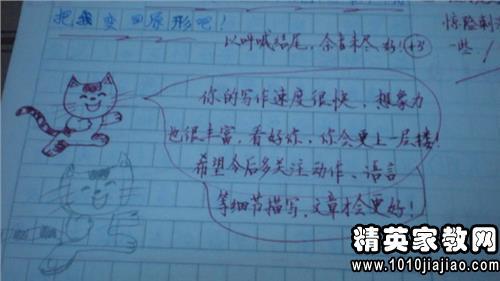 把我变回原形吧！
以呼喊结尾，余言未尽 好！+3
惊险刺
一些！
你的写作速度很快，想象力
也很丰富，看好你，你会更上一层楼！
希望今后多关注动作、语言
等细节描写，文章才会更好！
精英家教网
www.1010jiajiao.com